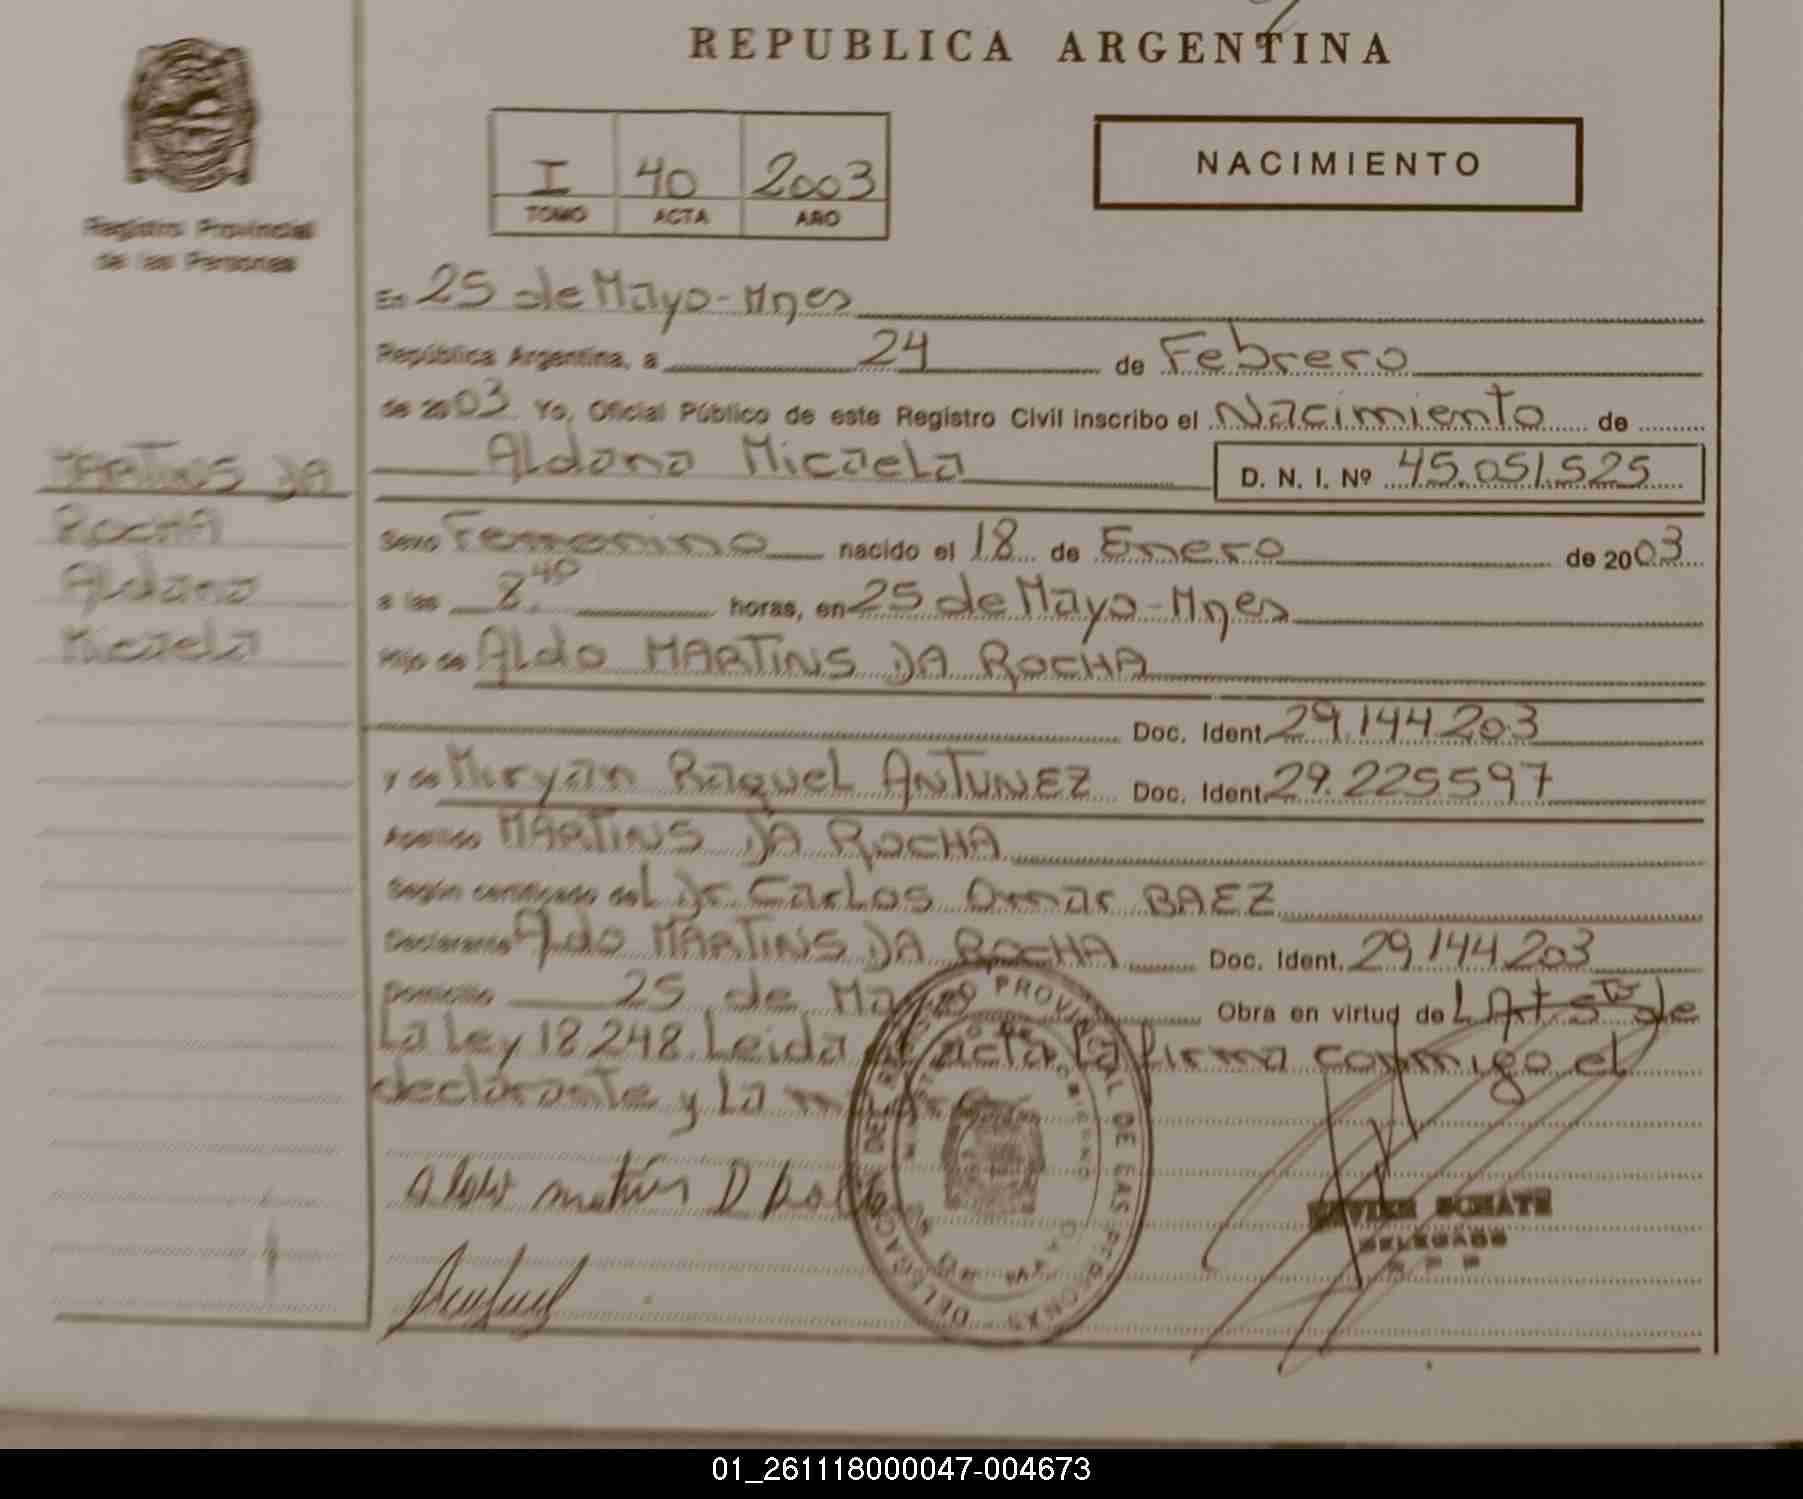 REPUBLICA ARGENTINA
I 40 2003
TOMO ACTA AÑO
NACIMIENTO
Registro Provincial
de las Personas
MARTINS DA
ROCHA
Aldana
Micaela
En 25 de Mayo - Mnes
República Argentina, a 24 de Febrero
de 2003 Yo, Oficial Público de este Registro Civil inscribo el Nacimiento de
Aldana Micaela D. N. I. Nº 45.051.525
Sexo Femenino nacido el 18 de Enero de 2003
a las 8.40 horas, en 25 de Mayo - Mnes
Hijo de Aldo MARTINS DA ROCHA
Doc. Ident. 29.144.203
y de Miryan Raquel ANTUNEZ Doc. Ident. 29.225597
Apellido MARTINS DA ROCHA
Según certificado del Dr. Carlos Omar BAEZ
Declarante Aldo MARTINS DA ROCHA Doc. Ident. 29.144.203
Domicilio 25 de Ma Obra en virtud de L Art 5to de
La Ley 18248 Leida el acta La firma conmigo el
declarante y La madre
DELEGADO
PROVINCIAL DE LAS PERSONAS
01_261118000047-004673